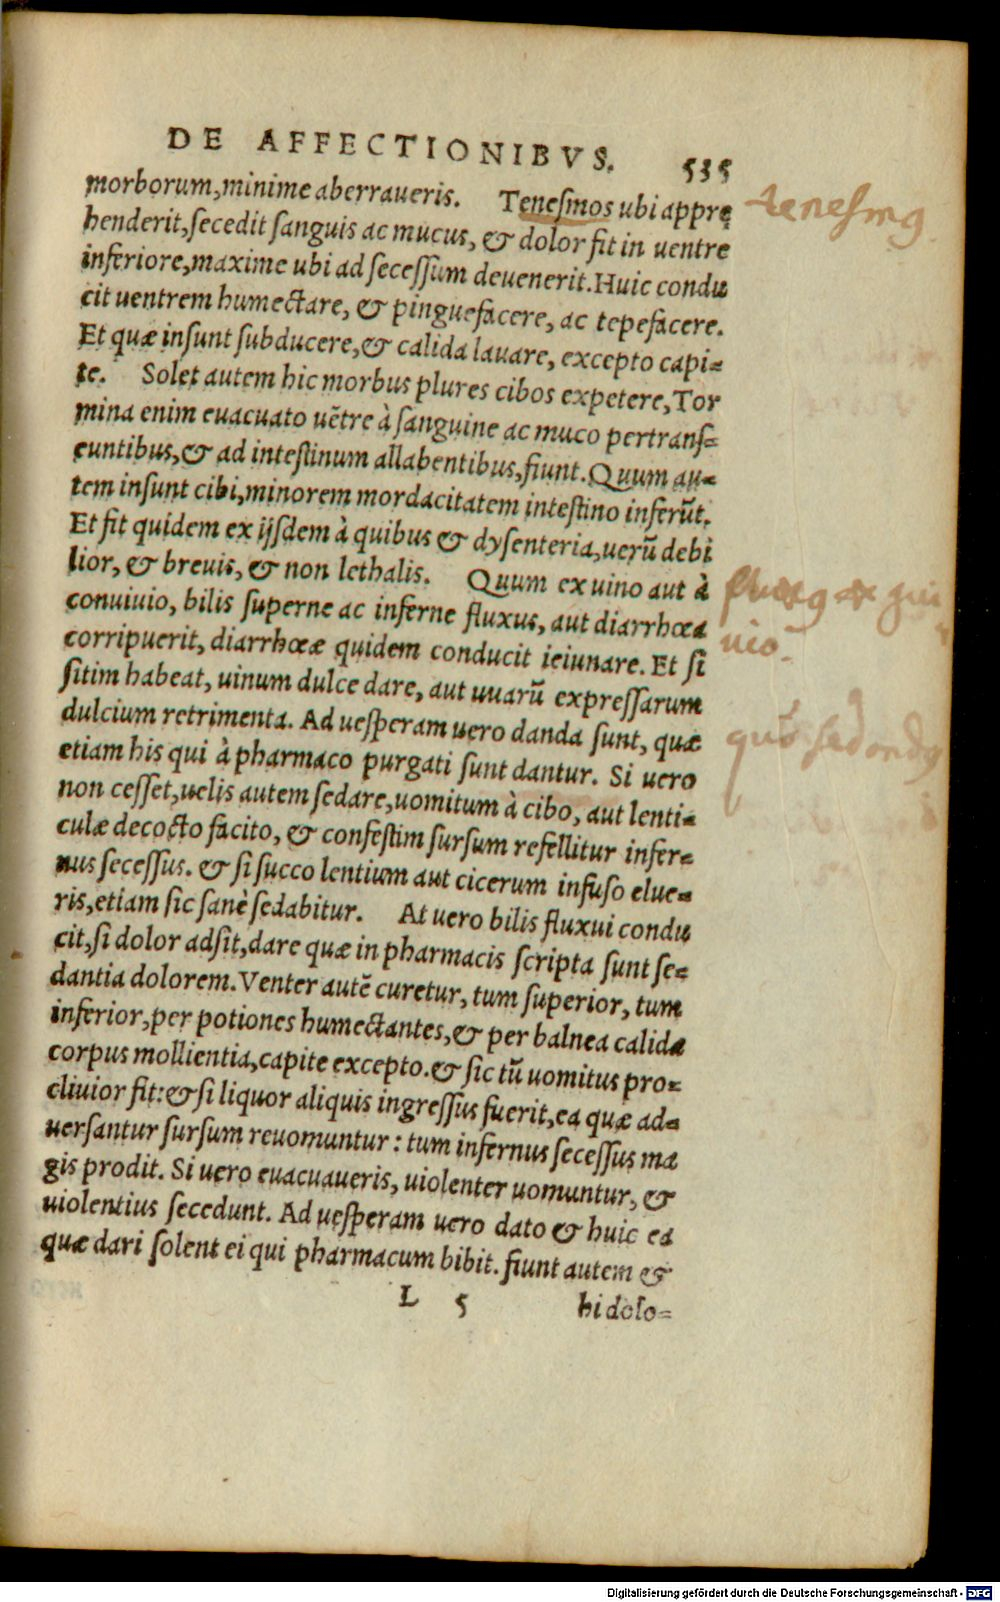 DE AFFECTIONIBVS. 535
morborum, minime aberraueris. Tenesmos ubi apprę
henderit, secedit sanguis ac mucus, & dolor fit in uentre
inferiore, maxime ubi ad secessum deuenerit. Huic condu
cit uentrem humectare, & pinguefacere, ac tepefacere.
Et quæ insunt subducere, & calida lauare, excepto capi=
te. Solet autem hic morbus plures cibos expetere, Tor
mina enim euacuato uẽtre à sanguine ac muco pertrans=
euntibus, & ad intestinum allabentibus, fiunt. Quum au=
tem insunt cibi, minorem mordacitatem intestino inferũt.
Et fit quidem ex ijsdem à quibus & dysenteria, uerũ debi
lior, & breuis, & non lethalis. Quum ex uino aut à
conuiuio, bilis superne ac inferne fluxus, aut diarrhœa
corripuerit, diarrhœæ quidem conducit ieiunare. Et si
sitim habeat, uinum dulce dare, aut uuarũ expressarum
dulcium retrimenta. Ad uesperam uero danda sunt, quæ
etiam his qui à pharmaco purgati sunt dantur. Si uero
non cesset, uelis autem sedare, uomitum à cibo, aut lenti=
culæ decocto facito, & confestim sursum refellitur infer=
nus secessus. & si succo lentium aut cicerum infuso elue=
ris, etiam sic sanè sedabitur. At uero bilis fluxui condu
cit, si dolor adsit, dare quæ in pharmacis scripta sunt se=
dantia dolorem. Venter autẽ curetur, tum superior, tum
inferior, per potiones humectantes, & per balnea calida
corpus mollientia, capite excepto. & sic tũ uomitus pro=
cliuior fit: & si liquor aliquis ingressus fuerit, ea quæ ad=
uersantur sursum reuomuntur: tum infernus secessus ma
gis prodit. Si uero euacuaueris, uiolenter uomuntur, &
uiolentius secedunt. Ad uesperam uero dato & huic ea
quæ dari solent ei qui pharmacum bibit. fiunt autem &
L 5 hi dolo=
tenesmꝯ
Digitalisierung gefördert durch die Deutsche Forschungsgemeinschaft - DFG